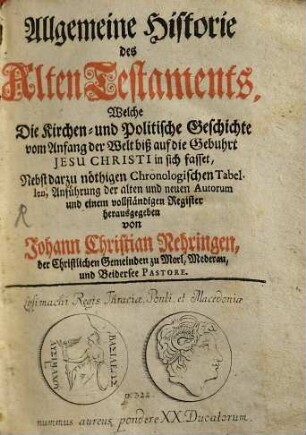 Allgemeine Historie
des
Alten Testaments,
Welche
Die Kirchen- und Politische Geschichte
vom Anfang der Welt biß auf die Gebuhrt
JESU CHRISTI in sich fasset,
Nebst darzu nöthigen Chronologischen Tabel-
len, Anführung der alten und neuen Autorum
und einem vollständigen Register
herausgegeben
von
Johann Christian Nehringen,
der Christlichen Gemeinden zu Morl, Mederau,
und Beidersee PASTORE.
Lysimachi Regis Thraciæ, Ponti, et Macedoniæ
ΒΑΣΙΛΕΩΣ
ΛΥΣΙΜΑΧΟΥ
p. 322.
nummus aureus pondere XX. Ducatorum.